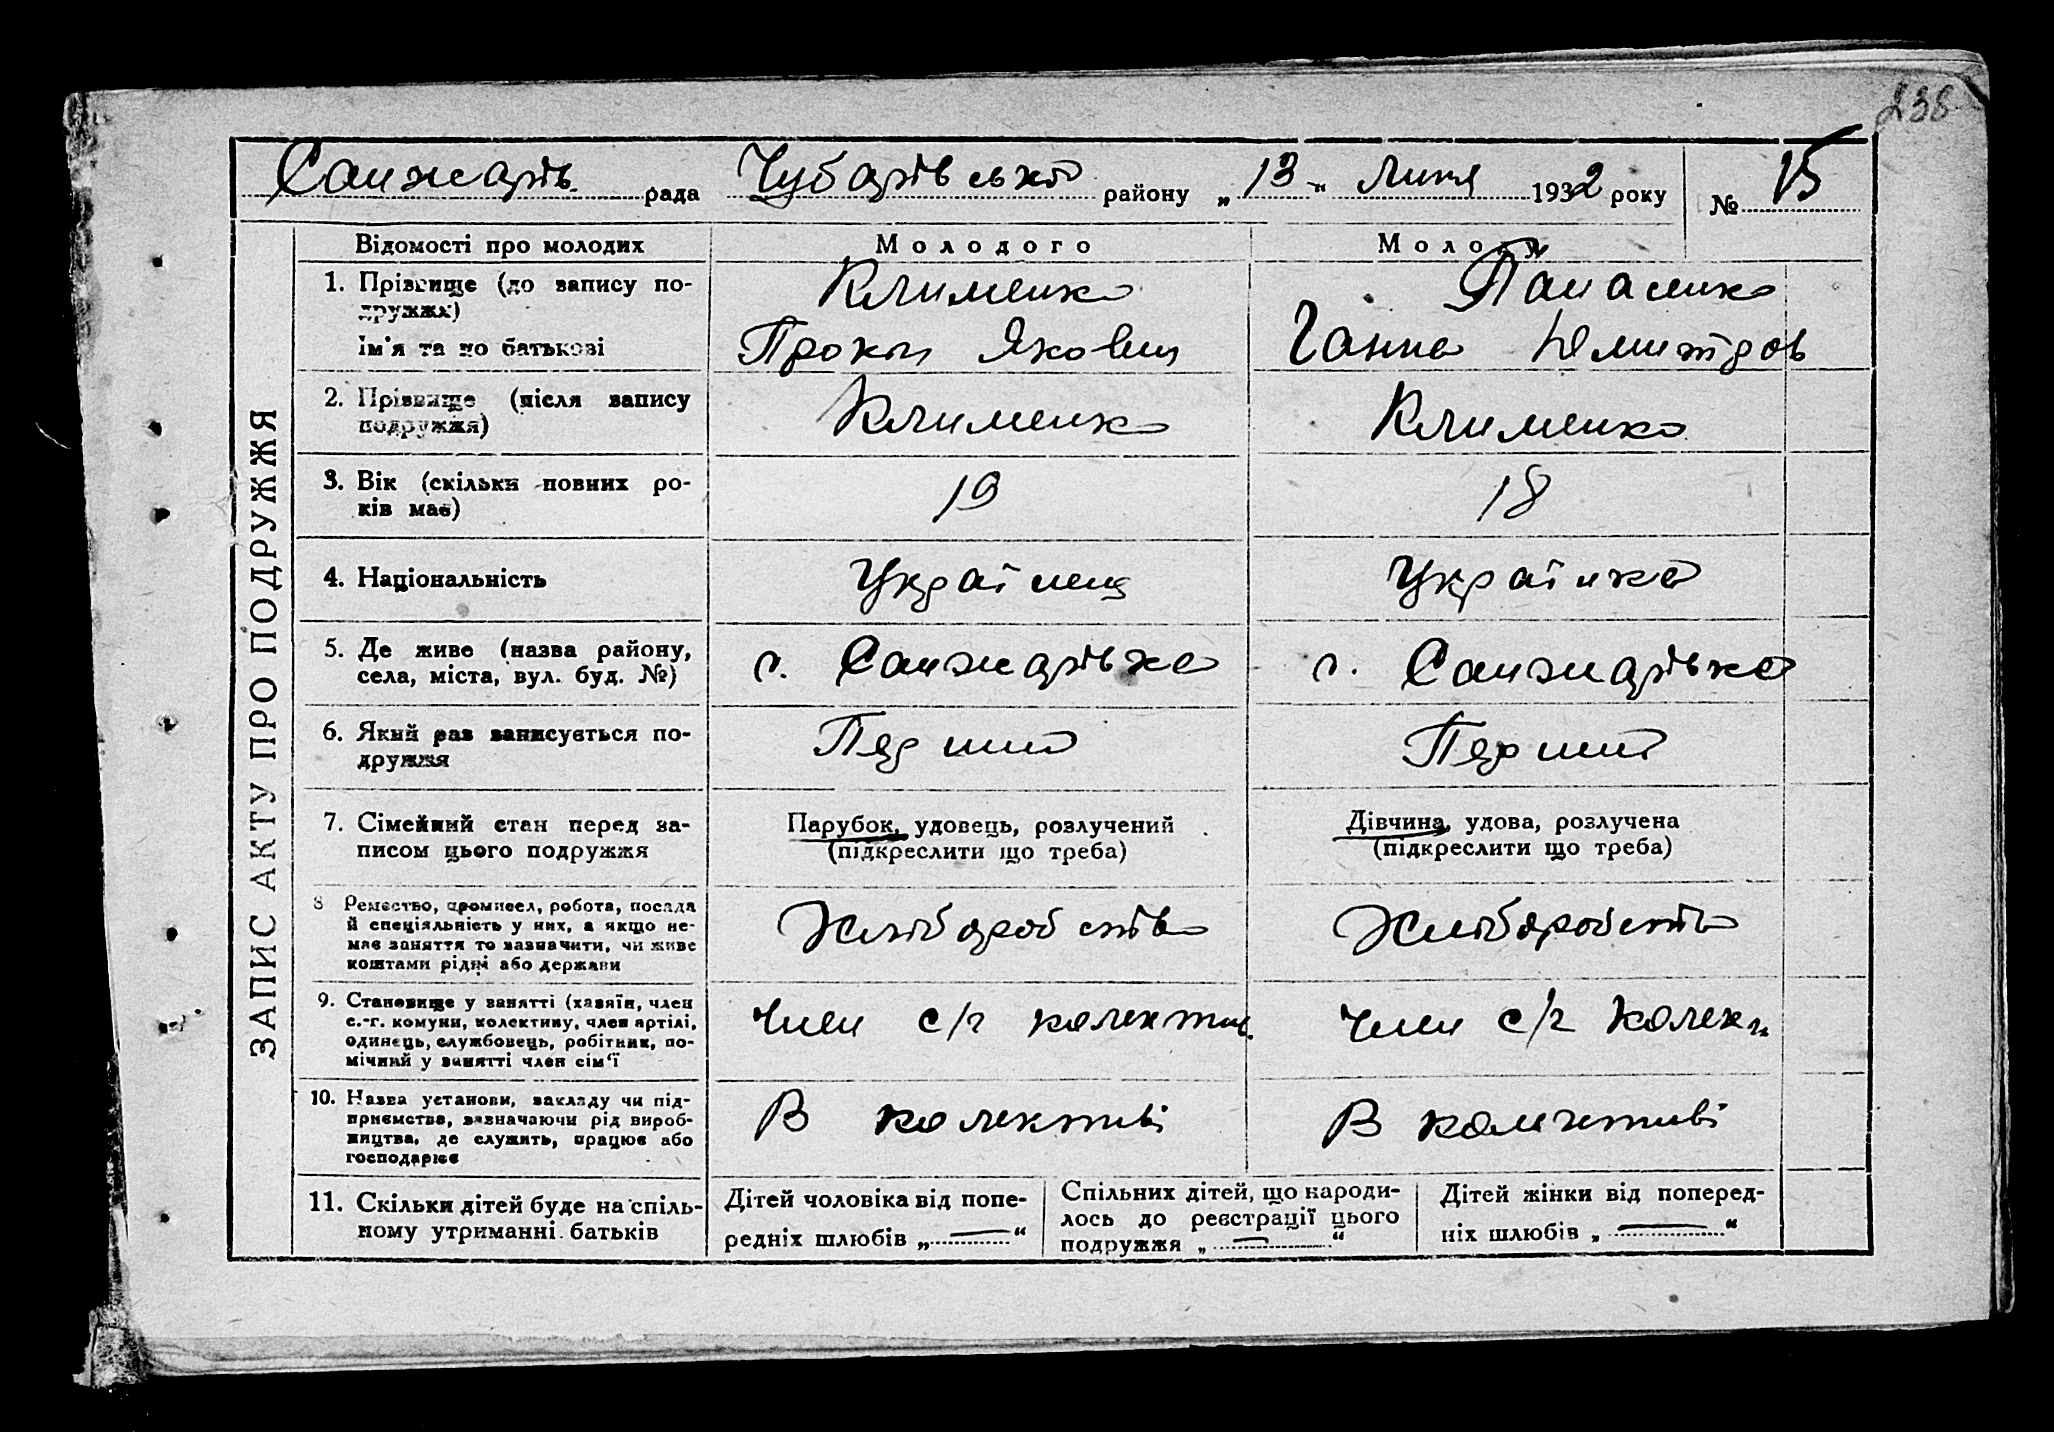 238
Санжарів рада Чубарівсько району „13" Липня 1932 року № 15
ЗАПИС АКТУ ПРО ПОДРУЖЖЯ
Відомості про молодих Молодого Молоду
1. Прізвище (до запису по-
дружжя)
Клименко Панасенко
Ім'я та по батькові Прокіп Якович Ганна Дмитров
2. Прізвище (після запису
подружжя)
Клименко Клименко
3. Вік (скільки повних ро-
ків має)
19 18
4. Національність Українец Українка
5. Де живе (назва району,
села, міста, вул. буд. №)
с. Санжарівка с. Санжарівка
6. Який раз записується по-
дружжя
Перший Перший
7. Сімейний стан перед за-
писом цього подружжя
Парубок, удовець, розлучений
(підкреслити що треба)
Дівчина, удова, розлучена
(підкреслити що треба)
8 Ремество, промисел, робота, посада
й спеціяльність у них, а якщо не-
має заняття то зазначити, чи живе
коштами рідні або держави
Хліборобство Хліборобств
9. Становище у занятті (хазяїн, член
с.-г. комуни, колективу, член артілі,
одинець, службовець, робітник, по-
мічний у занятті член сім'ї
Член с/г колектив. Член с/г колект
10. Назва установи, закладу чи під-
приємства, зазначаючи рід вироб-
ництва, де служить, працює або
господарює
В колективі В колективі
11. Скільки дітей буде на спіль-
ному утриманні батьків
Дітей чоловіка від попе-
редніх шлюбів „—"
Спільних дітей, що народи-
лось до реєстрації цього
подружжя „—"
Дітей жінки від поперед-
ніх шлюбів „—"